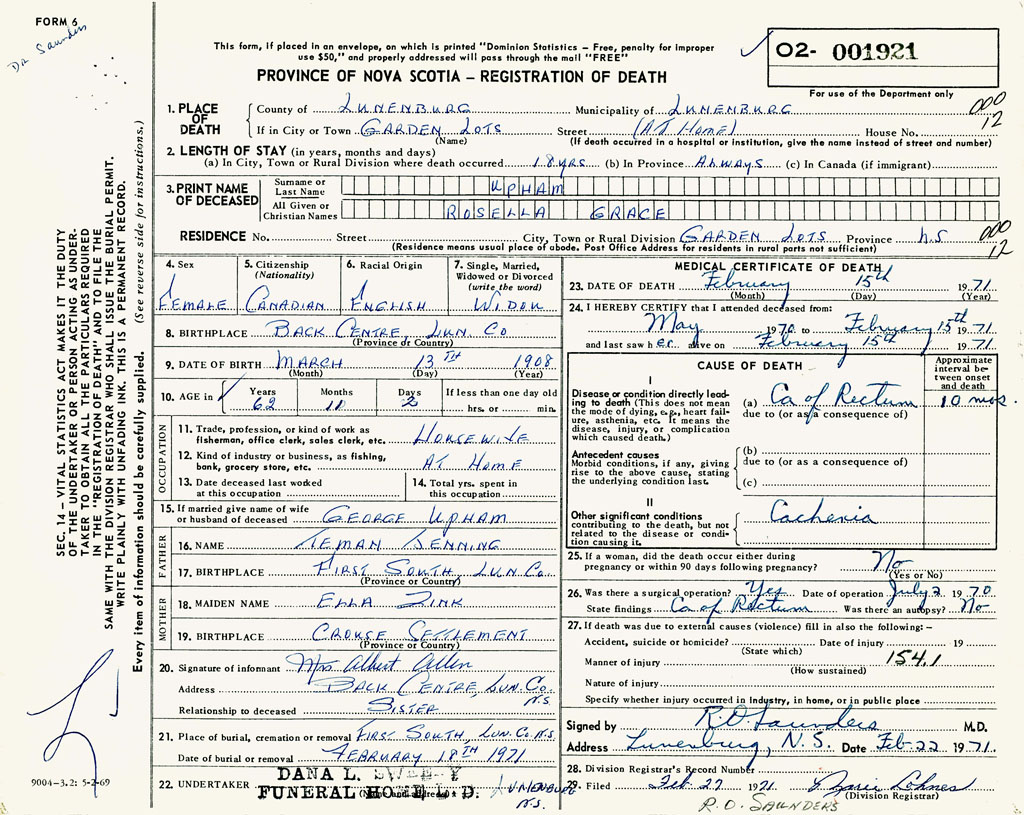 FORM 6
Dr Saunders
This form, if placed in an envelope, on which is printed "Dominion Statistics – Free, penalty for improper
use $50," and properly addressed will pass through the mail "FREE"
PROVINCE OF NOVA SCOTIA – REGISTRATION OF DEATH
02- 001921
For use of the Department only
SEC. 14 – VITAL STATISTICS ACT MAKES IT THE DUTY
OF THE UNDERTAKER OR PERSON ACTING AS UNDER-
TAKER TO OBTAIN ALL THE PARTICULARS REQUIRED
IN THE "REGISTRATION OF DEATH" AND TO FILE THE
SAME WITH THE DIVISION REGISTRAR WHO SHALL ISSUE THE BURIAL PERMIT.
WRITE PLAINLY WITH UNFADING INK. THIS IS A PERMANENT RECORD.
Every item of information should be carefully supplied. (See reverse side for instructions.)
1. PLACE OF DEATH County of LUNENBURG Municipality of LUNENBURG 000 12
If in City or Town GARDEN LOTS Street (AT HOME) House No.
(Name) (If death occurred in a hospital or institution, give the name instead of street and number)
2. LENGTH OF STAY (in years, months and days)
(a) In City, Town or Rural Division where death occurred 18 YRS (b) In Province ALWAYS (c) In Canada (if immigrant)
3. PRINT NAME OF DECEASED Surname or Last Name UPHAM
All Given or Christian Names ROSELLA GRACE
RESIDENCE No. Street City, Town or Rural Division GARDEN LOTS Province N.S 000 12
(Residence means usual place of abode. Post Office Address for residents in rural parts not sufficient)
4. Sex FEMALE
5. Citizenship (Nationality) CANADIAN
6. Racial Origin ENGLISH
7. Single, Married, Widowed or Divorced (write the word) WIDOW
8. BIRTHPLACE BACK CENTRE, LUN. CO
(Province or Country)
9. DATE OF BIRTH MARCH 13TH 1908
(Month) (Day) (Year)
10. AGE in Years 62 Months 11 Days 2 If less than one day old hrs. or min.
OCCUPATION
11. Trade, profession, or kind of work as fisherman, office clerk, sales clerk, etc. HOUSEWIFE
12. Kind of industry or business, as fishing, bank, grocery store, etc. AT HOME
13. Date deceased last worked at this occupation
14. Total yrs. spent in this occupation
15. If married give name of wife or husband of deceased GEORGE UPHAM
FATHER
16. NAME TEMAN JENNING
17. BIRTHPLACE FIRST SOUTH LUN. CO.
(Province or Country)
MOTHER
18. MAIDEN NAME ELLA ZINK
19. BIRTHPLACE CROUSE SETTLEMENT
(Province or Country)
20. Signature of informant Mrs Albert Allen
Address BACK CENTRE LUN. CO. N.S
Relationship to deceased SISTER
21. Place of burial, cremation or removal FIRST SOUTH, LUN. CO N.S.
Date of burial or removal FEBRUARY 18TH 1971
22. UNDERTAKER DANA L. SWEENY
FUNERAL HOME LTD. LUNENBURG N.S.
(Name and address)
9004–3.2: 5-2-69
MEDICAL CERTIFICATE OF DEATH
23. DATE OF DEATH February 15th 1971
(Month) (Day) (Year)
24. I HEREBY CERTIFY that I attended deceased from:
May 1970 to February 15th 1971
and last saw her alive on February 15th 1971
CAUSE OF DEATH
Approximate interval between onset and death
I
Disease or condition directly leading to death (This does not mean the mode of dying, e.g., heart failure, asthenia, etc. It means the disease, injury, or complication which caused death.)
(a) Ca of Rectum 10 mos.
due to (or as a consequence of)
Antecedent causes
Morbid conditions, if any, giving rise to the above cause, stating the underlying condition last.
(b)
due to (or as a consequence of)
(c)
II
Other significant conditions contributing to the death, but not related to the disease or condition causing it.
Cachexia
25. If a woman, did the death occur either during pregnancy or within 90 days following pregnancy? No
(Yes or No)
26. Was there a surgical operation? Yes Date of operation July 2 1970
State findings Ca of Rectum Was there an autopsy? No
27. If death was due to external causes (violence) fill in also the following: –
Accident, suicide or homicide? Date of injury 19
(State which)
Manner of injury 154.1
(How sustained)
Nature of injury
Specify whether injury occurred in industry, in home, or in public place
Signed by R.O. Saunders M.D.
Address Lunenburg, N.S. Date Feb 22 1971.
28. Division Registrar's Record Number
29. Filed Feb 27 1971 Lohnes
(Division Registrar)
R. O. SAUNDERS